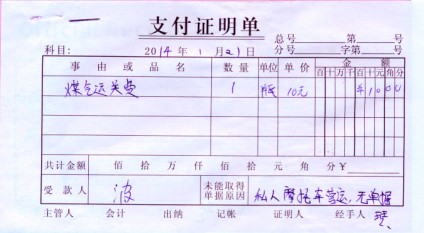 支付证明单
总号 第 号
科目: 2014年 1月21日 分号 字第 号
事由或品名 数量 单位 单价 金额
百十万千百十元角分
煤气运 1 10元 ¥1000
共计金额 佰 拾 万 仟 佰 拾 元 角 分 ¥
受款人 波 未能取得单据原因 私人摩托车营运,无单据
主管人 会计 出纳 记帐 证明人 经手人